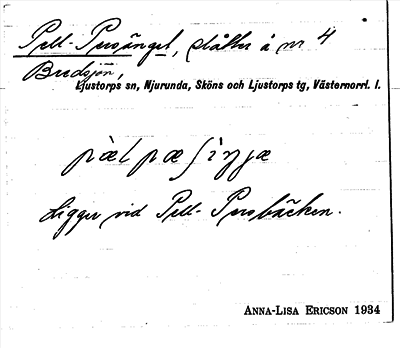 Pell-Persänget, slåtter å nr 4
Bredsjön,
Ljustorps sn, Njurunda, Sköns och Ljustorps tg, Västernorrl. l.
Ligger vid Pell-Persbäcken.
ANNA-LISA ERICSON 1934